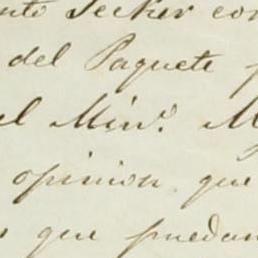 Secker con
del Paquete
el Minº. M
opinion que
que puedan